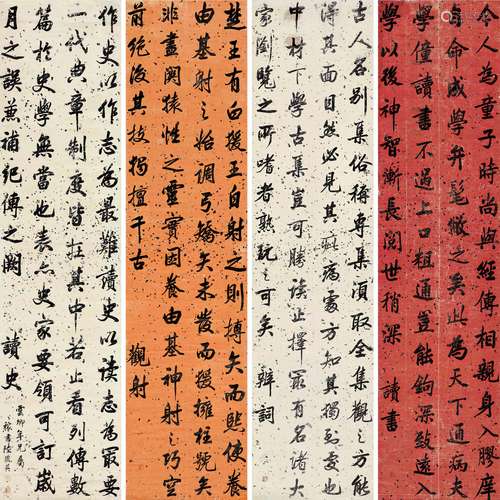 今人為童子時尚與經傳相親入膠庠
弁髦敝之矣此為天下通病夫
學僮讀書不過上口粗通豈能鉤深致遠入
學以後神智漸長閱世稍深 讀書
古人名別集俗稱專集須取全集觀之方能
得其面目然必見其疵病處方知其獨到處也
中材下學古集豈可勝讀止擇最有名諸大
家瀏覽之所嗜者熟玩之可矣 辯詞
楚王有白猨王自射之則搏矢而熙使養
由基射之始調弓矯矢未發而猨擁柱號矣
非盡關猿性之靈實因養由基神射之巧空
前絕後其技獨擅千古 觀射
作史以作志為最難讀史以讀志為最要
一代典章制度皆在其中若止看列傳數
篇於史學無當也表亦史家要領可訂歲
月之誤兼補紀傳之闕 讀史
雲卿年兄屬